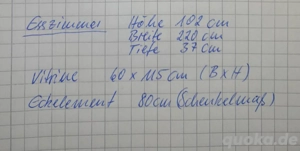 Esszimmer Höhe 102 cm
Breite 220 cm
Tiefe 37 cm
Vitrine 60 x 115 cm (B x H)
Eckelement 80 cm (Schenkelmaß)
quoka.de